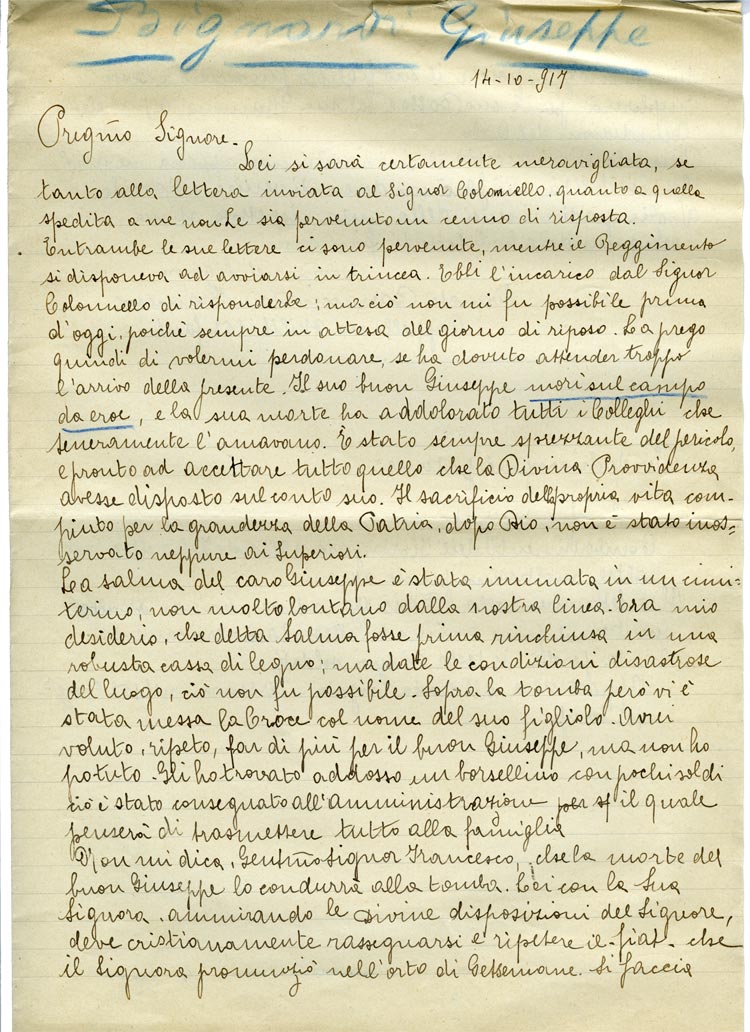 Bignardi Giuseppe
14-10-917
Pregmo Signore.
Lei si sarà certamente meravigliata, se
tanto alla lettera inviata al Signor Colonnello, quanto a quella
spedita a me non Le sia pervenuto un cenno di risposta.
Entrambe le sue lettere ci sono pervenute, mentre il Reggimento
si disponeva ad avviarsi in trincea. Ebbi l'incarico dal Signor
Colonnello di risponderLe; ma ciò non mi fu possibile prima
d'oggi, poichè sempre in attesa del giorno di riposo. La prego
quindi di volermi perdonare, se ha dovuto attender troppo
l'arrivo della presente. Il suo buon Giuseppe morì sul campo
da eroe, e la sua morte ha addolorato tutti i Colleghi che
teneramente l'amavano. È stato sempre sprezzante del pericolo,
e pronto ad accettare tutto quello che la Divina Provvidenza
avesse disposto sul conto suo. Il sacrificio della propria vita com-
piuto per la grandezza della Patria, dopo Dio, non è stato inos=
servato neppure ai Superiori.
La salma del caro Giuseppe è stata inumata in un cimi-
terino, non molto lontano dalla nostra linea. Era mio
desiderio, che detta Salma fosse prima rinchiusa in una
robusta cassa di legno; ma date le condizioni disastrose
del luogo, ciò non fu possibile. Sopra la tomba però vi è
stata messa la Croce col nome del suo figliolo. Avrei
voluto, ripeto, far di più per il buon Giuseppe, ma non ho
potuto. Gli ho trovato addosso un borsellino con pochi soldi
ciò è stato consegnato all'amministrazione il quale
penserà di trasmettere tutto alla famiglia
Non mi dica, Gentmo Signor Francesco, che la morte del
buon Giuseppe lo condurrà alla tomba. Lei con la Sua
Signora, ammirando le Divine disposizioni del Signore,
deve cristianamente rassegnarsi e ripetere il - fiat - che
il Signore pronunziò nell'orto di Getsemane. Si faccia